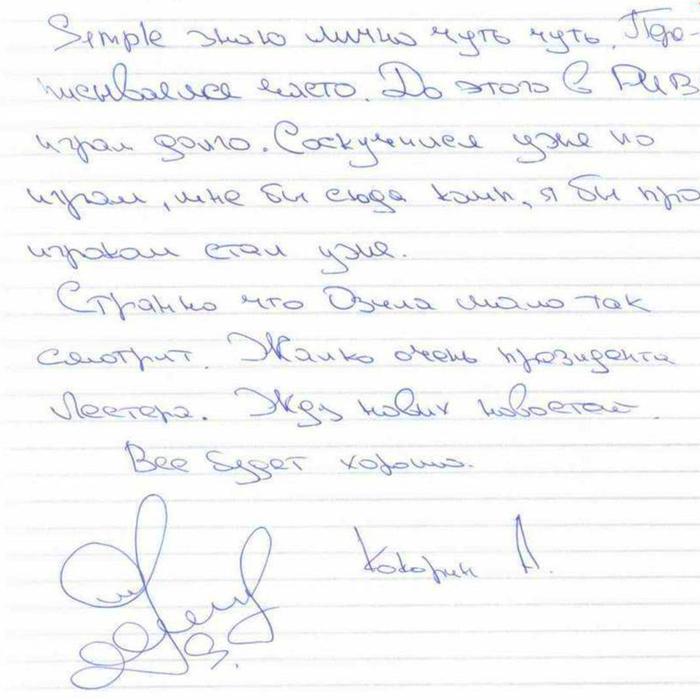 Simple знаю лично чуть чуть. Пере-
писываемся часто. До этого в
играл долго. Соскучился уже по
играм, мне бы сюда комп, я бы про
игроком стал уже.
Странно что Озила мало так
смотрит. Жалко очень президента
Лестера. Жду новых новостей.
Все будет хорошо.
Кокорин А.